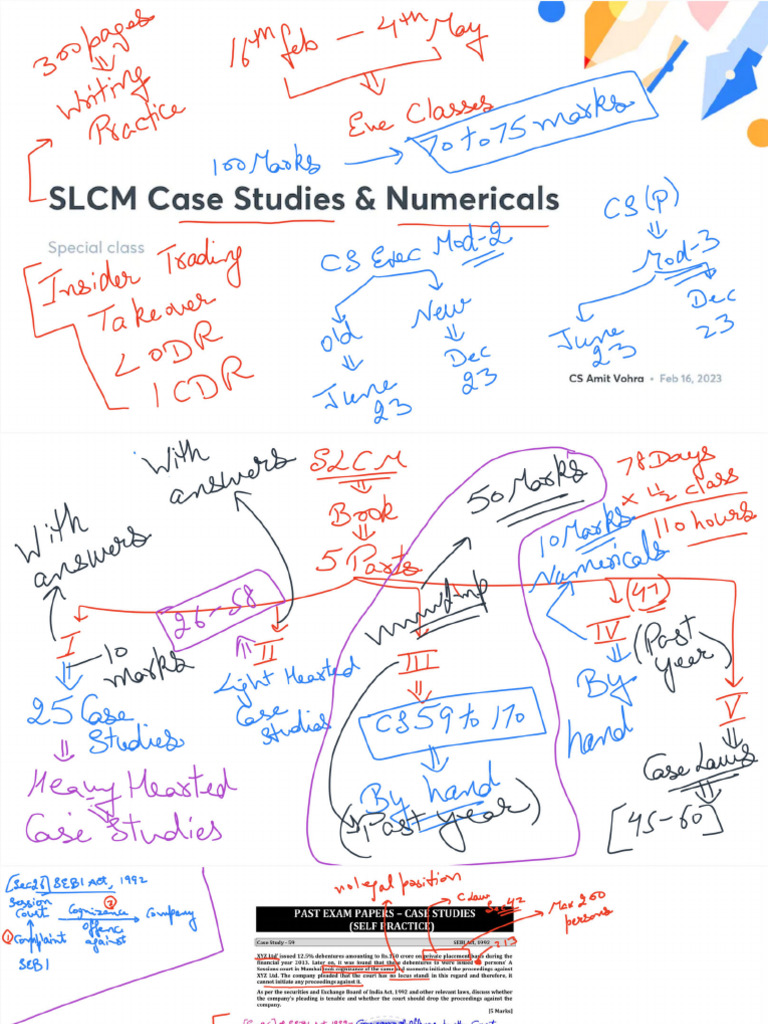 300 pages
Writing
Practice
16th feb – 4th May
Eve Classes
100 Marks → 70 to 75 marks
SLCM Case Studies & Numericals
Special class
Insider Trading
Takeover
LODR
ICDR
CS Exec Mod-2
Old
New
June
23
Dec
23
CS (P)
Mod-3
June
23
Dec
23
CS Amit Vohra • Feb 16, 2023
With
answers
With
answers
SLCM
Book
5 Parts
50 Marks
78 Days
× 1½ class
110 hours
10 Marks
Numericals
26 – 58
I
10
marks
25 Case
Studies
Heavy Hearted
Case Studies
II
Light Hearted
Case
Studies
III
CS 59 to 170
By hand
(Past year)
(41)
IV
(Past
year)
By
hand
V
Case Laws
[45-60]
[Sec 26] SEBI Act, 1992
Session
Court
Cognizance
offence
against
Company
② 
① Complaint
SEBI
no legal position
C Law
Sec 42
Max 200
persons
PAST EXAM PAPERS – CASE STUDIES
(SELF PRACTICE)
Case Study - 59
SEBI Act, 1992
XYZ Ltd' issued 12.5% debentures amounting to Rs.150 crore on private placement basis during the
financial year 2013. Later on, it was found that these debentures to were issued persons' A
Sessions court in Mumbai took cognizance of the same and suomoto initiated the proceedings against
XYZ Ltd. The company pleaded that the court has no locus standi in this regard and therefore, it
cannot initiate any proceedings against it.
As per the securities and Exchange Board of India Act, 1992 and other relevant laws, discuss whether
the company's pleading is tenable and whether the court should drop the proceedings against the
company.
[5 Marks]